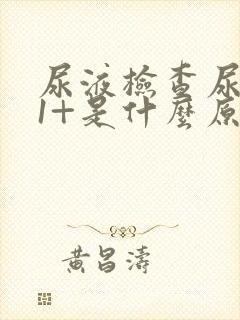 尿液檢查尿
1+是什麼原
黃昌濤